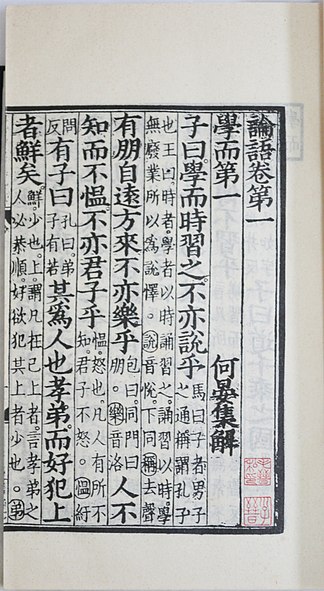 論語卷第一
學而第一 何晏集解
子曰學而時習之不亦說乎 馬曰子者男子之通稱謂孔子
也王曰時者學者以時誦習之誦習以時學無廢業所以爲說懌。說音悅下同稱去聲
有朋自遠方來不亦樂乎 包曰同門曰朋。樂音洛 人不
知而不愠不亦君子乎 愠怒也凡人有所不知君子不怒。愠紆
問反 有子曰 孔曰弟子有若 其爲人也孝弟而好犯上
者鮮矣 鮮少也上謂凡在己上者言孝弟之人必恭順好欲犯其上者少也。弟